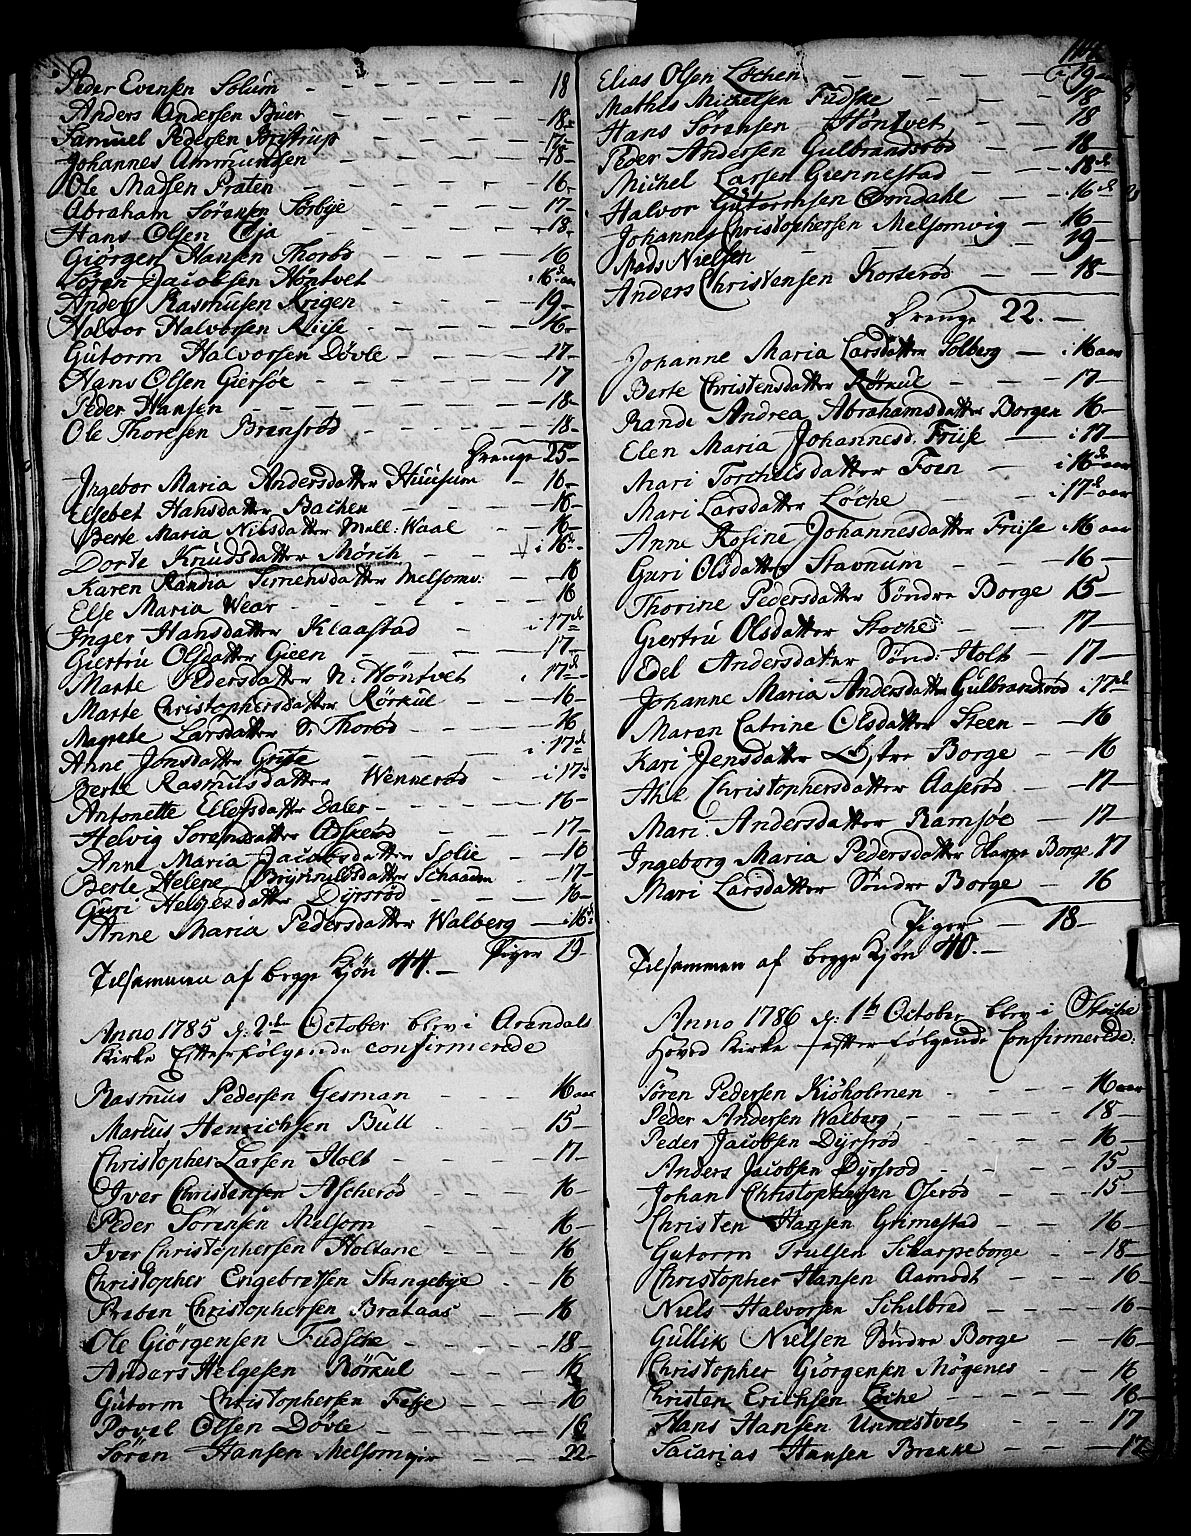 Peder Evensen Solum - - - - 18
Anders Andersen Buer - - - 18
Samuel Pedersen Bristrup - - 17
Johannes Ammundsen - - - 18
Ole Madsen Praten - - - - 16
Abraham Sørensen Sørbye - - 17
Hans Olsen Eja - - - - 18
Giørgen Hansen Thorød - - - 16
Søren Jacobsen Høntvet - - i 16d aar
Anders Rasmusen Krigen - - - 19
Halvor Halvorsen Riise - - - 16
Gutorm Halvorsen Døvle - - - 17
Hans Olsen Giersøe - - - - 17
Peder Hansen - - - - 18
Ole Thoresen Brensrød - - - 18
Drenge 25
Ingebor Maria Andersdatter Huusum - 16
Elsebet Hansdatter Bachen - - - 16
Berte Maria Nielsdatter Mell: Waal - - 16
Dorte Knudsdatter Mørch - - i 16d
Karen Randia Simensdatter Melsomv: - - 16
Else Maria Wear - - - - 16
Inger Hansdatter Klaastad - - i 17de
Giertru Olsdatter Gieen - - - 17
Marte Pedersdatter N: Høntvet - i 17d
Marte Christophersdatter Rørkul - - 16
Magrete Larsdatter S. Thorød - - - 16
Anne Jonsdatter Grise - - - i 17d
Berte Rasmusdatter Wennerød - - i 17d
Antonette Ellefsdatter Daler - - - 16
Helvig Sørensdatter Adskerød - - - 17
Anne Maria Jacobsdatter Solie - - 16
Berte Helene Brynnildsdatter Schaaden - - 17
Guri Helgesdatter Dyrsrød - - - 16
Anne Maria Pedersdatter Walberg - i 16d
Piger 19
Tilsammen af begge Kjøn 44.
Anno 1785 d: 2d October blev i Arendals
Kirke Efterfølgende confirmerede
Rasmus Pedersen Gesman - - - 16 aar
Marcus Henrichsen Bull - - - 15
Christopher Larsen Holt - - - 17
Iver Christensen Ascherød - - - 16
Peder Sørensen Melsom - - - 16
Iver Christophersen Holtane - - - 16
Christopher Engebretsen Stangebye - - 16
Preben Christophersen Brataas - - - 16
Ole Giørgensen Fudske - - - 18
Anders Helgesen Rørkul - - - 16
Gutorm Christophersen Fekje - - - 16
Povel Olsen Døvle - - - 16
Søren Hansen Melsomvig - - - 22
Elias Olsen Løchen - - - - 19 aar
Mathes Michelsen Fudske - - 18
Hans Sørensen Høntvet - - 18
Peder Andersen Gulbrandsrød - - 18
Michel Larsen Giennestad - - 18de
Halvor Gutormsen Domdahl - - 16de
Johannes Christophersen Melsomvig - 16
Mads Nielsen - - - - 19
Anders Christensen Korterød - - 18
Drenge 22.
Johanne Maria Larsdatter Solberg - i 16 aar
Berte Christensdatter Rørkul - - 17
Rande Andrea Abrahamsdatter Borgen 16
Elen Maria Johannesd. Friise - i 17
Mari Torchelsdatter Foen - - i 16d aar
Mari Larsdatter Løche - - - i 17d aar
Anne Rosine Johannesdatter Friise i 16 aar
Guri Olsdatter Stavnum - - - 16
Thorine Pedersdatter Søndre Borge 15
Giertru Olsdatter Stoche - - - 17
Edel Andersdatter Sønd: Holt - - 17
Johanne Maria Andersdatter Gulbrandsrød i 17d
Maren Catrine Olsdatter Steen - - 16
Kari Jensdatter Østre Borge - - 16
Ahle Christophersdatter Aaserød - - 17
Mari Andersdatter Ramsøe - - 17
Ingeborg Maria Pedersdatter Skarpe Borge 17
Mari Larsdatter Søndre Borge - 16
Piger - 18
Tilsammen af begge Kjøn 40.
Anno 1786 d: 1te October blev i Stoche
Hoved Kirke efterfølgende Confirmerede:
Søren Pedersen Kioholmen - - 16 aar
Peder Andersen Walberg - - - 18
Peder Jacobsen Dyrsrød - - - 16
Anders Jacobsen Dyrsrød - - - 15
Johan Christophersen Oserød - - 15
Christen Hansen Grimestad - - 16
Gutorm Trulsen Scharpeborge - - 18
Christopher Hansen Aamodt - - - 16
Niels Halvorsen Schelbred - - - 16
Gullik Nielsen Søndre Borge - 16
Christopher Giørgensen Mogenes - - 16
Christen Erichsen Løche - - - 16
Hans Hansen Unnestvet - - - 17
Sacarias Hansen Brekke - - - 17